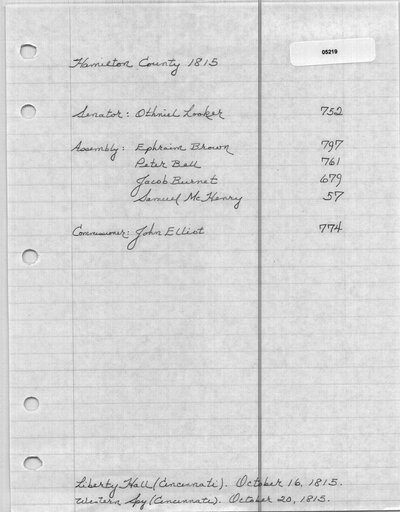 05219
Hamilton County 1815
Senator: Othniel Looker 752
Assembly: Ephraim Brown 797
Peter Bell 761
Jacob Burnet 679
Samuel McHenry 57
Commissioner: John Elliot 774
Liberty Hall (Cincinnati). October 16, 1815.
Western Spy (Cincinnati). October 20, 1815.